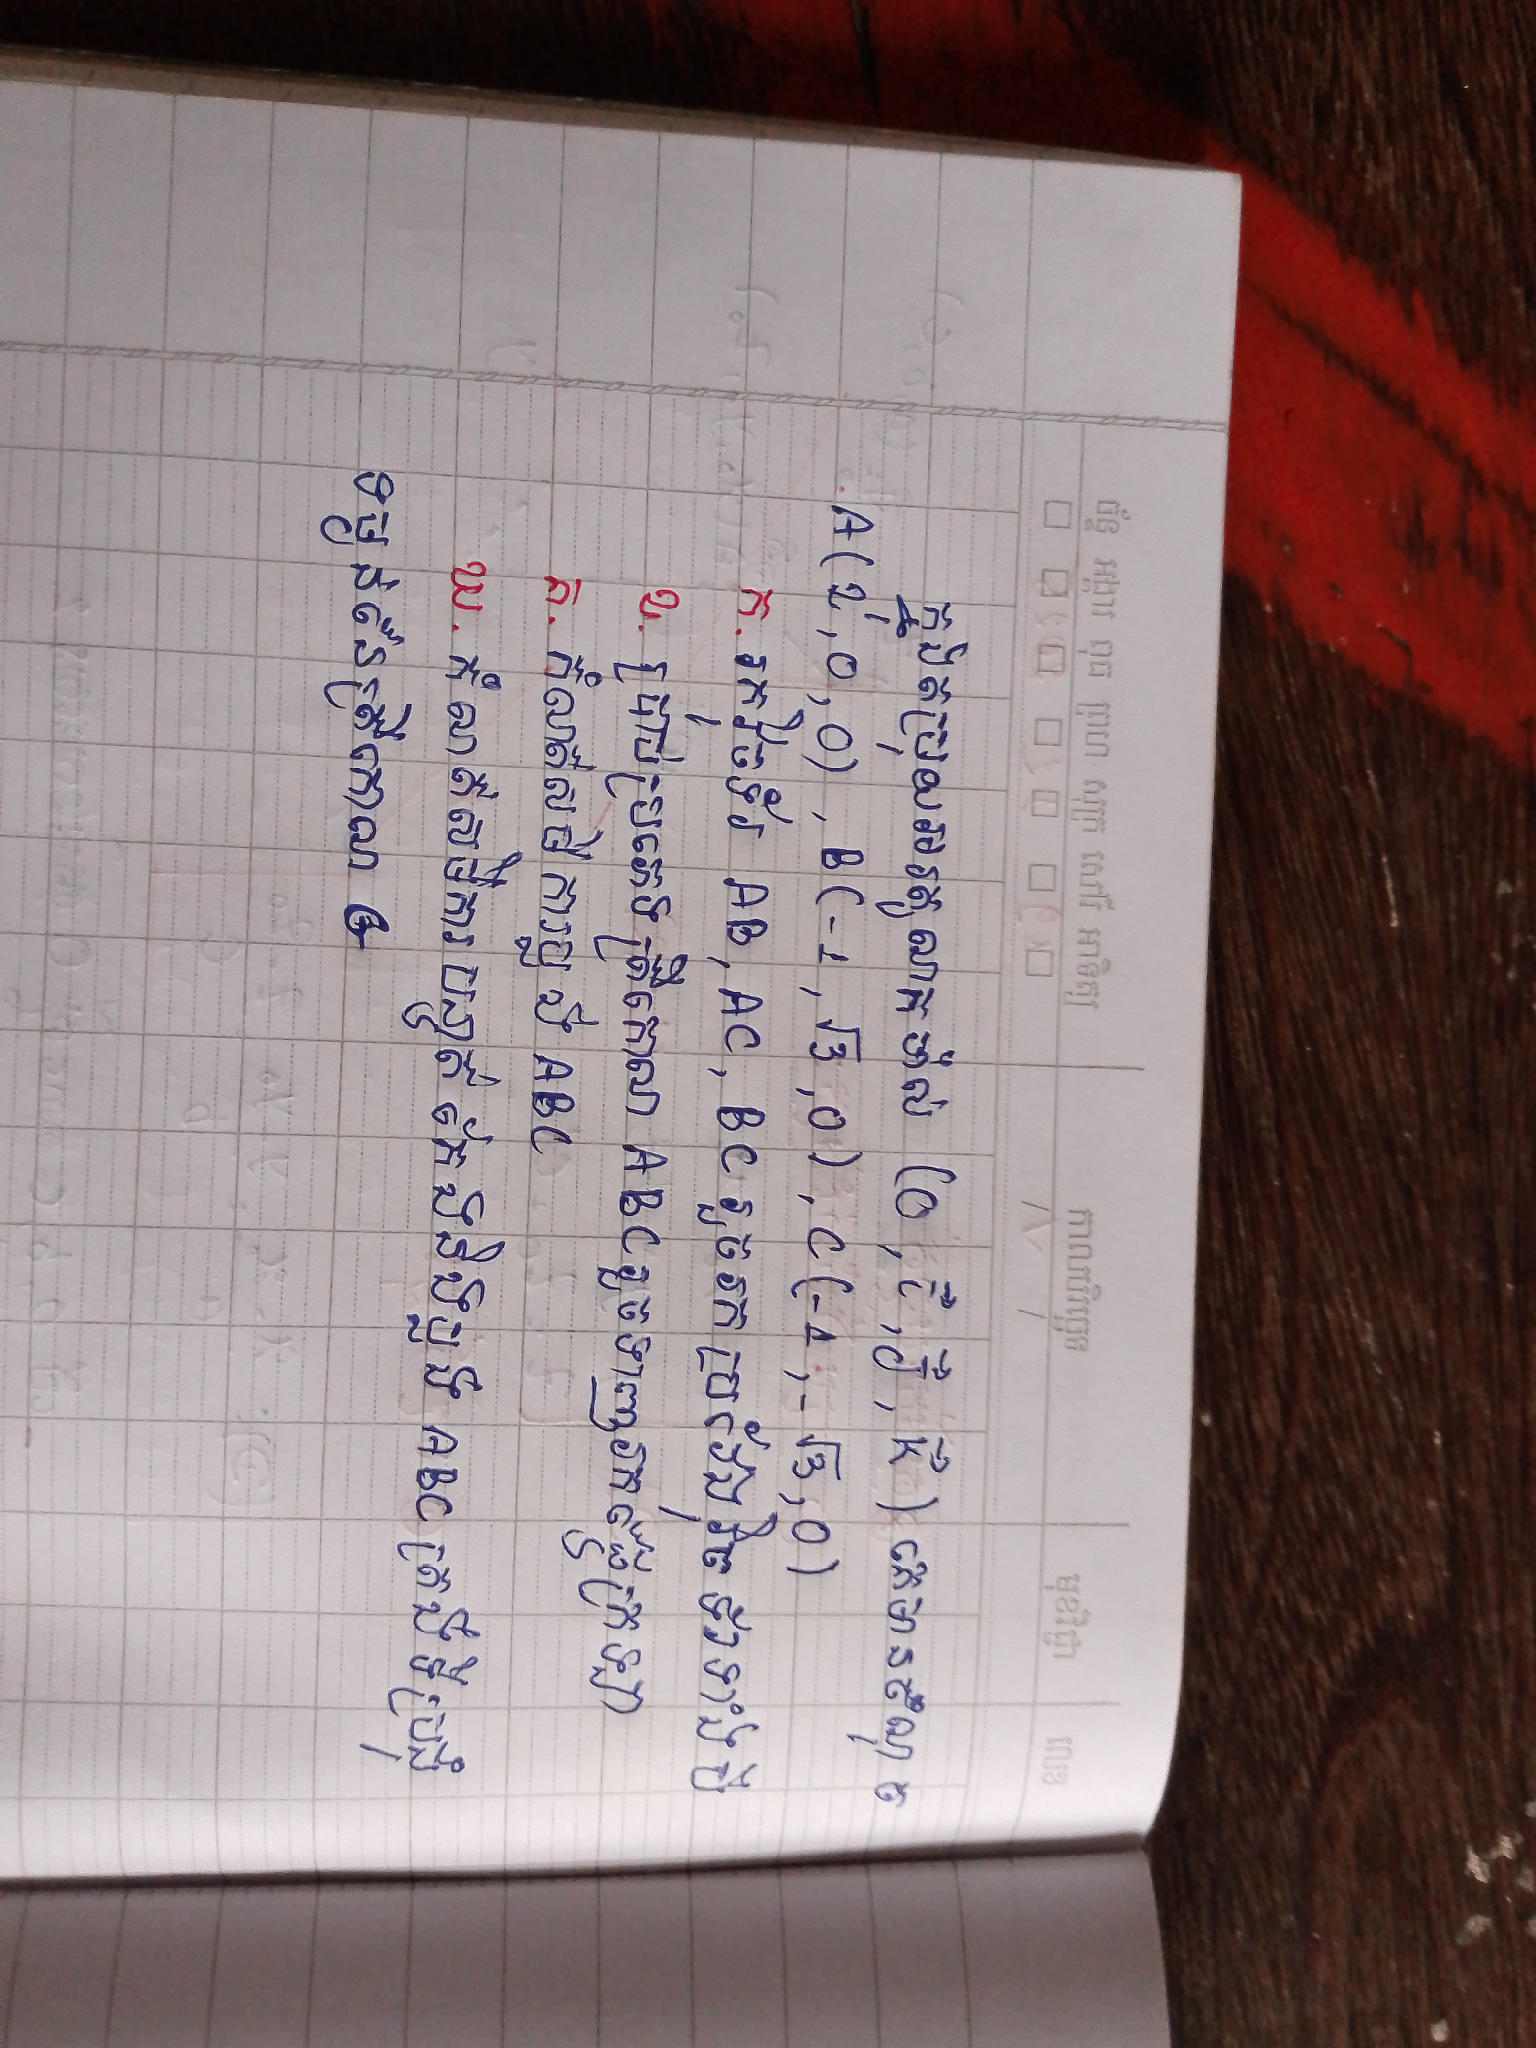 ក្នុងតម្រុយអរតូណរម៉ាល់ (O, i⃗, j⃗, k⃗) គេមានចំណុច
A(2,0,0), B(-1,√3,0), C(-1,-√3,0)
ក. រកវ៉ិចទ័រ AB, AC, BC រួចរកប្រវែងវ៉ិចទ័រទាំងបី
ខ. ប្រាប់ប្រភេទត្រីកោណ ABC រួចទាញរកផ្ទៃក្រឡា
គ. កំណត់សមីការប្លង់ ABC
ឃ. កំណត់សមីការបន្ទាត់ កែងនឹងប្លង់ ABC ត្រង់ទីប្រជុំ
ទម្ងន់នៃត្រីកោណ G
ច័ន្ទ អង្គារ ពុធ ព្រហ សុក្រ សៅរ៍ អាទិត្យ
កាលបរិច្ឆេទ